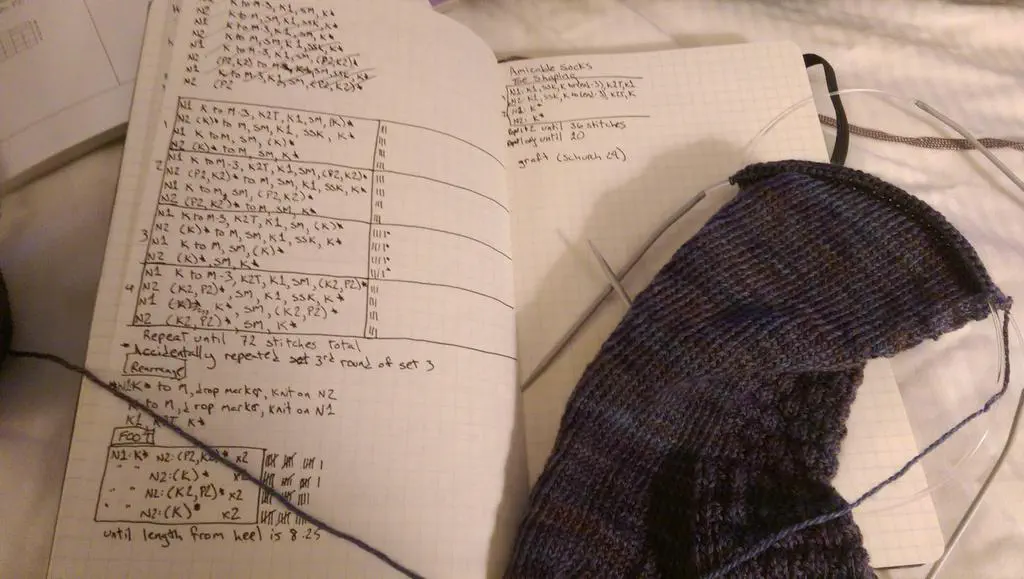 N2 K to M-3, K1, SM, K*
N1 K to M-3, K1, SSK, K*
N2 (P2
N1 K to M-3, K2T, K1, SM, (K)*
N2 (K)* to M, SM, K1, SSK, K*
N1 K to M, SM, (K)*
N2 (K)* to M, SM, K*
2 N1 K to M-3, K2T, K1, SM, (P2,K2)*
N2 (P2,K2)* to M, SM, K1, SSK, K*
N1 K to M, SM, (P2,K2)*
N2 (P2,K2)* to M, SM, K*
3 N1 K to M-3, K2T, K1, SM, (K)*
N2 (K)* to M, SM, K1, SSK, K*
N1 K to M, SM, (K)*
N2 (K)*, SM, K*
4 N1 K to M-3, K2T, K1, SM, (K2,P2)*
N2 (K2,P2)*, SM, K1, SSK, K*
N1 (K), SM, (K2,P2)*
N2 (K2,P2)*, SM, K*
Repeat until 72 stitches total
* Accidentally repeated 3rd round of set 3
Rearrange
N1: K* to M, drop marker, knit on N2
to M, drop marker, knit on N1
K*
FOOT
N1: K* N2: (P2,K2)* x2
" " N2: (K)* x2
" " N2: (K2,P2)* x2
" " N2: (K)* x2
until length from heel is 8.25
Amicable Socks
Toe Shaping
N1: K1, SSK, K to (end-3), K2T, K1
N2: K1, SSK, K to (end-3), K2T, K
N1: K*
N2: K*
until 36 stitches
until 20
graft